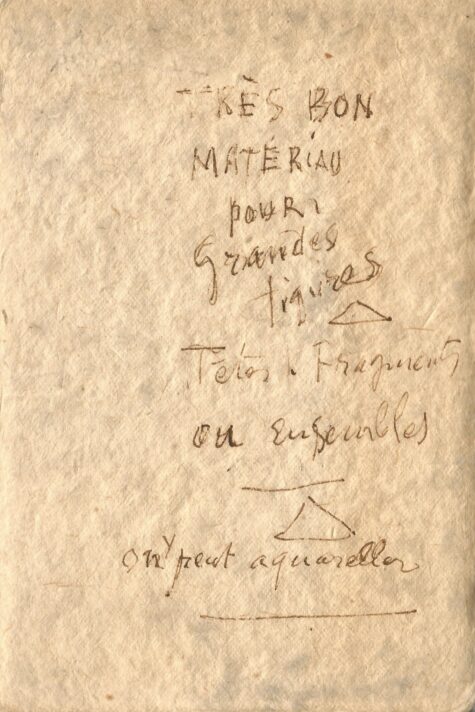 TRÈS BON
MATÉRIAU
POUR
Grandes
figures
Têtes. Fragments
ou ensembles
on y peut aquareller